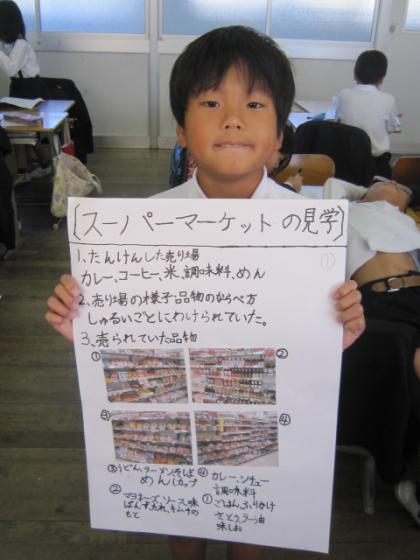 〔スーパーマーケットの見学〕
①
1、たんけんした売り場
カレー、コーヒー、米、調味料、めん
2、売り場の様子品物のならべ方
しゅるいごとにわけられていた。
3、売られていた品物
① ②
③ ④
③うどん、ラーメンそば
めん(カップ
④カレー、シチュー
調味料
②
マヨネーズ、ソース味
ぽんず、たれ、キムチの
もと
①ごはん、ふりかけ
さとう、ラー油
味しお